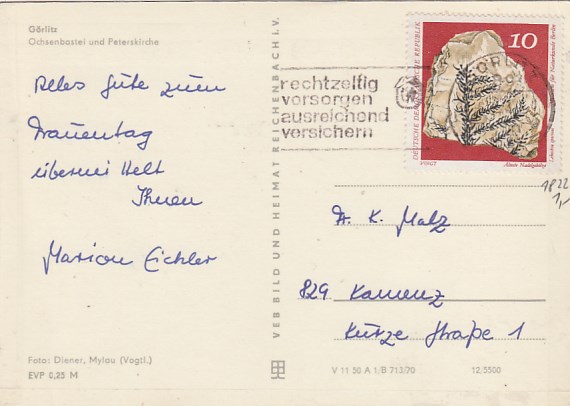 Görlitz
Ochsenbastei und Peterskirche
Alles Gute zum
Frauentag
übermittelt
Ihnen
Marion Eichler
VEB BILD UND HEIMAT REICHENBACH i.V.
rechtzeitig
vorsorgen
ausreichend
versichern
GÖRLITZ
10
DEUTSCHE DEMOKRATISCHE REPUBLIK
für Naturkunde Berlin
VOIGT
1822
1,-
K. Malz
829 Kamenz
Kurze Straße 1
Foto: Diener, Mylau (Vogtl.)
EVP 0,25 M
V 11 50 A 1/B 713/70
12/5500